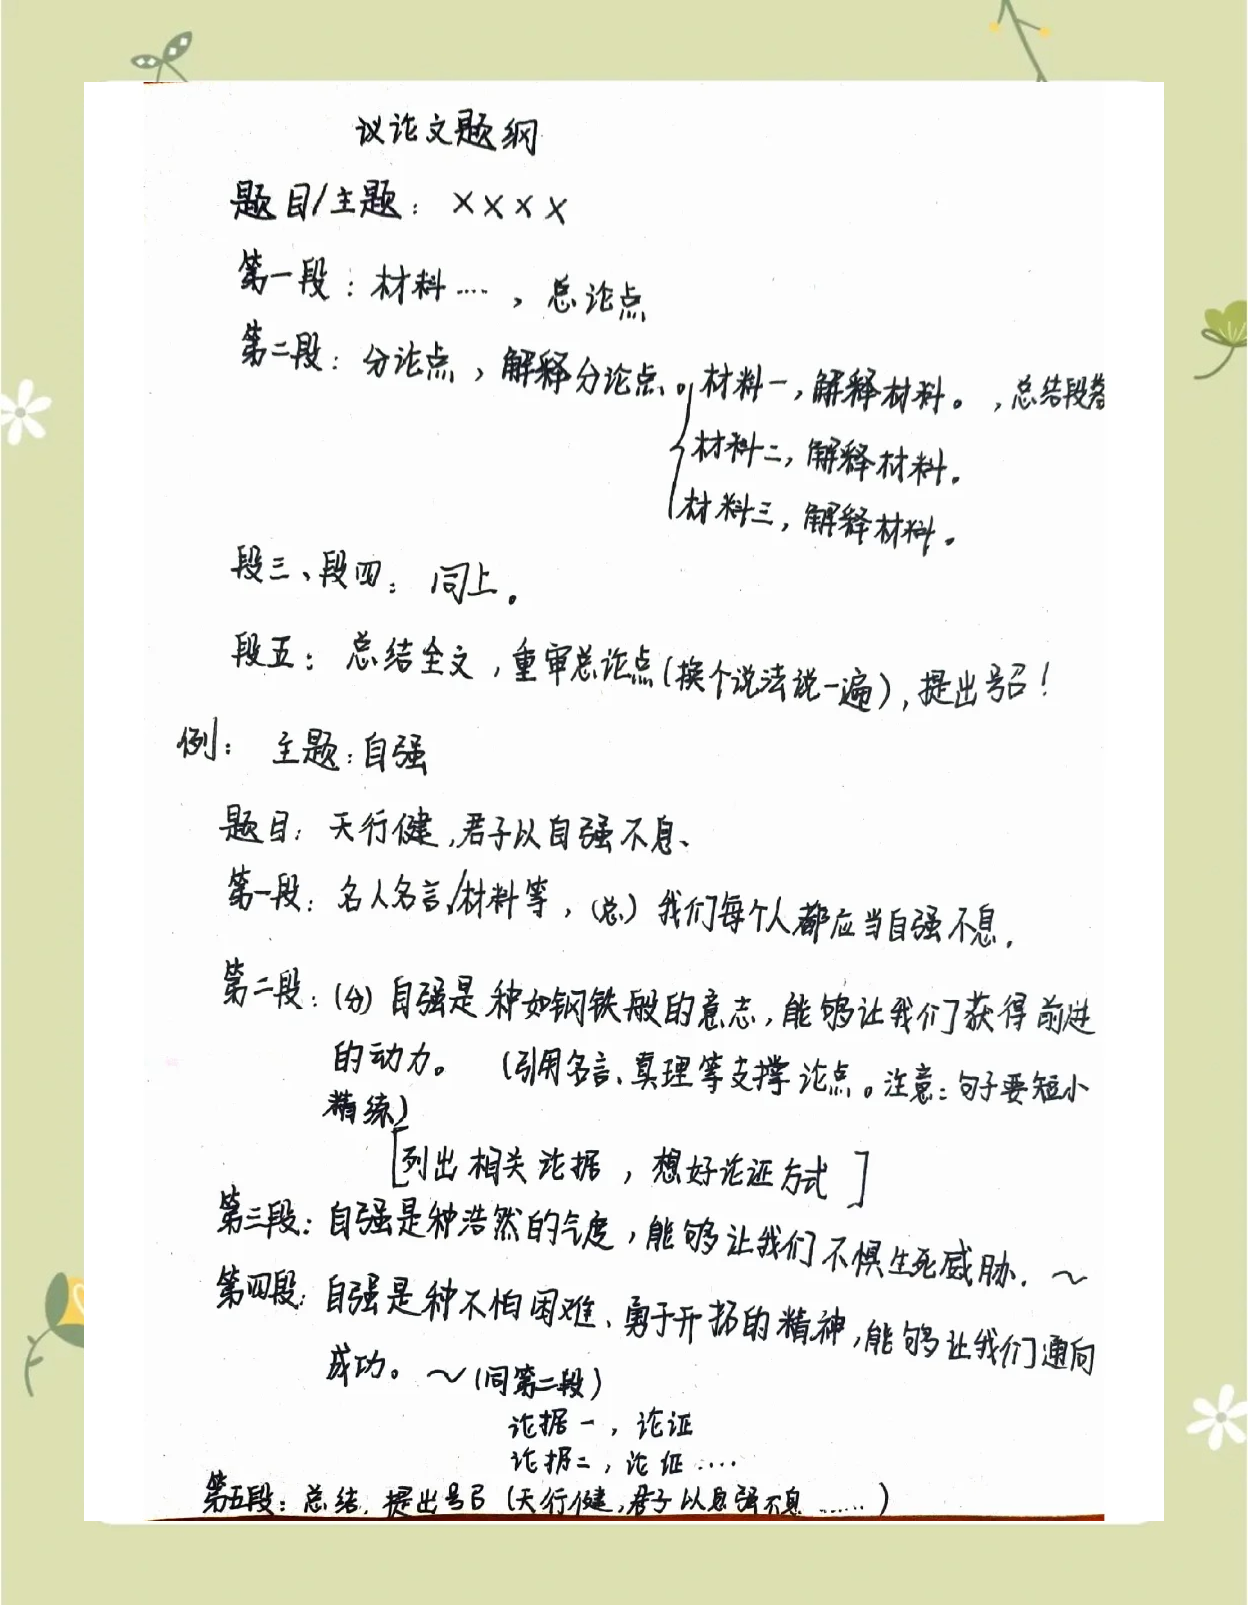 议论文题纲
题目/主题：××××
第一段：材料……，总论点
第二段：分论点，解释分论点。材料一，解释材料。，总结段落
材料二，解释材料。
材料三，解释材料。
段三、段四：同上。
段五：总结全文，重审总论点(换个说法说一遍)，提出号召！
例：主题：自强
题目：天行健，君子以自强不息、
第一段：名人名言/材料等，(总)我们每个人都应当自强不息.
第二段：(分)自强是种如钢铁般的意志，能够让我们获得前进
的动力。(引用名言、真理等支撑论点。注意：句子要短小
精练)
[列出相关论据，想好论证方式]
第三段：自强是种浩然的气度，能够让我们不惧生死威胁.～
第四段：自强是种不怕困难、勇于开拓的精神，能够让我们通向
成功。～(同第二段)
论据一，论证
论据二，论证……
第五段：总结，提出号召(天行健，君子以自强不息……)